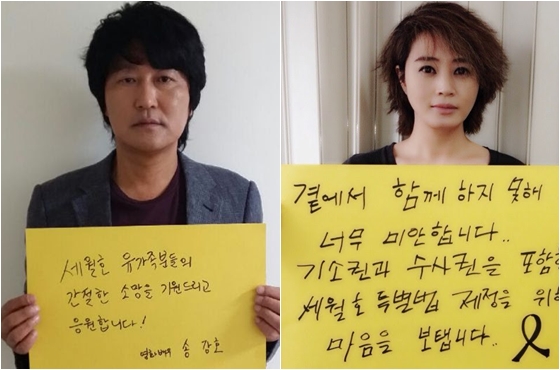 세월호 유가족분들의
간절한 소망을 기원드리고
응원합니다!
영화배우 송강호
곁에서 함께 하지 못해
너무 미안합니다..
기소권과 수사권을 포함한
세월호 특별법 제정을 위해
마음을 보탭니다..